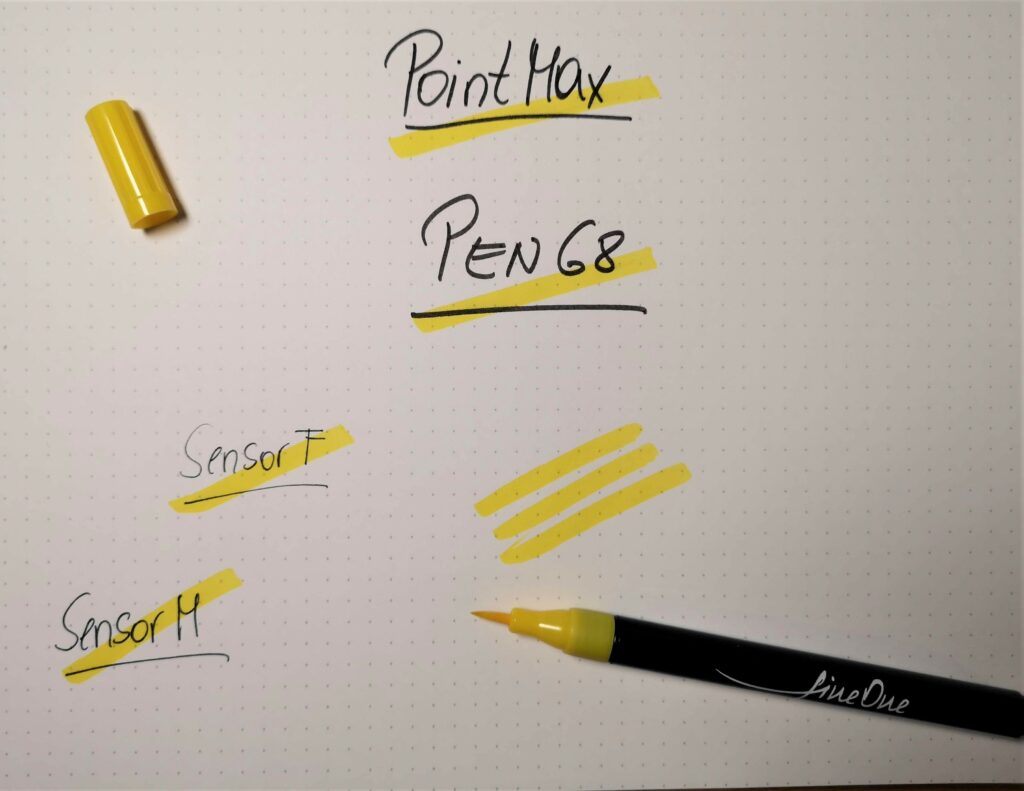 Point Max
PEN 68
Sensor F
Sensor M
FineOne